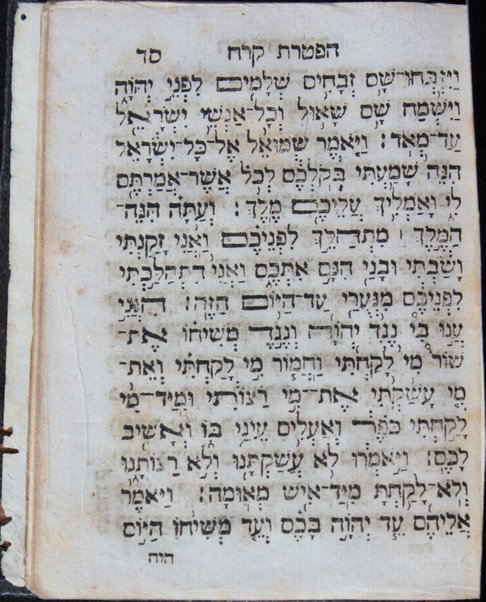 הפטרת קרח סד
וַיִּזְבְּחוּ־שָׁם זְבָחִים שְׁלָמִים לִפְנֵי יְהוָֹה
וַיִּשְׂמַח שָׁם שָׁאוּל וְכָל־אַנְשֵׁי יִשְׂרָאֵל
עַד־מְאֹד׃ וַיֹּאמֶר שְׁמוּאֵל אֶל־כָּל־יִשְׂרָאֵל
הִנֵּה שָׁמַעְתִּי בְקֹלְכֶם לְכֹל אֲשֶׁר־אֲמַרְתֶּם
לִי וָאַמְלִיךְ עֲלֵיכֶם מֶלֶךְ׃ וְעַתָּה הִנֵּה־
הַמֶּלֶךְ ׀ מִתְהַלֵּךְ לִפְנֵיכֶם וַאֲנִי זָקַנְתִּי
וָשַׂבְתִּי וּבָנַי הִנָּם אִתְּכֶם וַאֲנִי הִתְהַלַּכְתִּי
לִפְנֵיכֶם מִנְּעֻרַי עַד־הַיּוֹם הַזֶּה׃ הִנְנִי
עֲנוּ בִי נֶגֶד יְהוָֹה וְנֶגֶד מְשִׁיחוֹ אֶת־
שׁוֹר מִי לָקַחְתִּי וַחֲמוֹר מִי לָקַחְתִּי וְאֶת־
מִי עָשַׁקְתִּי אֶת־מִי רַצּוֹתִי וּמִיַּד־מִי
לָקַחְתִּי כֹפֶר וְאַעְלִים עֵינַי בּוֹ וְאָשִׁיב
לָכֶם׃ וַיֹּאמְרוּ לֹא עֲשַׁקְתָּנוּ וְלֹא רַצּוֹתָנוּ
וְלֹא־לָקַחְתָּ מִיַּד־אִישׁ מְאוּמָה׃ וַיֹּאמֶר
אֲלֵיהֶם עֵד יְהוָֹה בָּכֶם וְעֵד מְשִׁיחוֹ הַיּוֹם
הזה